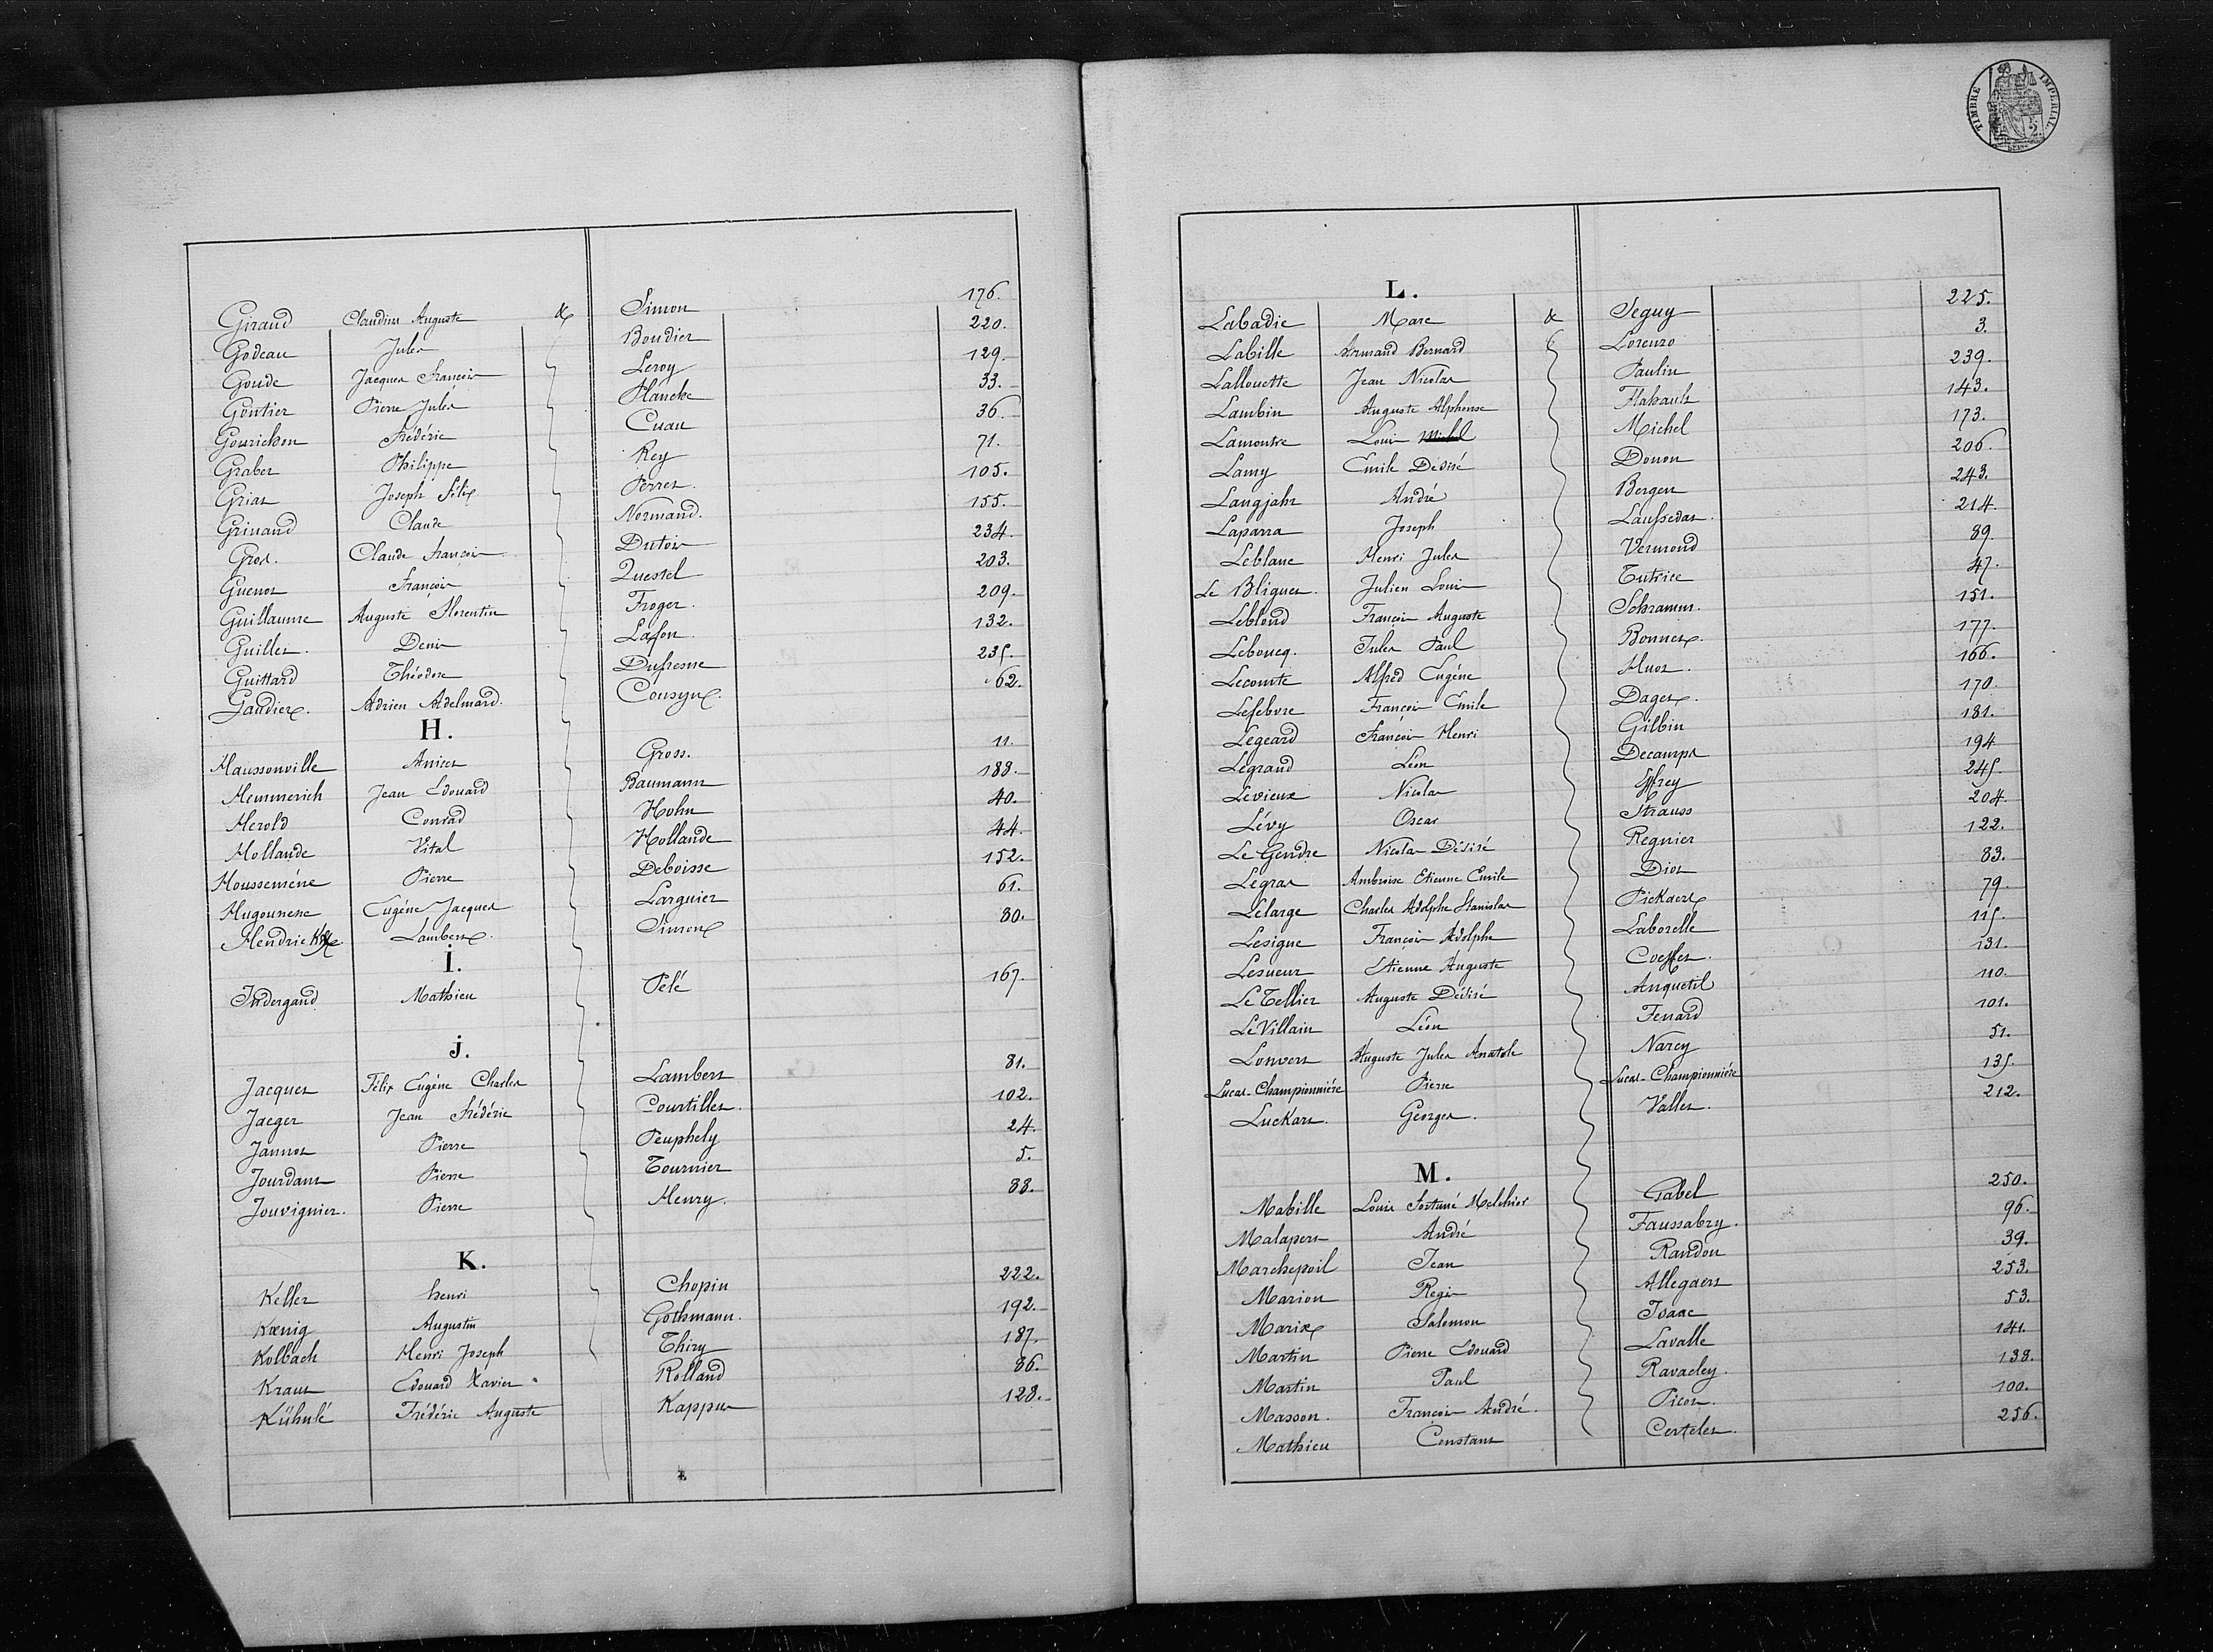 Giraud Claudius Auguste & Simon 176.
Godeau Jules Boudier 220.
Goude Jacques François Leroy 129.
Goutier Pierre Jules Planche 33.
Gourichon Frédéric Cuau 36.
Graber Philippe Rey 71.
Grias Joseph Félix Perret 105.
Grinand Claude Normand. 155.
Gros. Claude François Dutoir 234.
Guenot François Questel 203.
Guillaume Auguste Florentin Froger. 209.
Guillet. Denis Lafon. 132.
Guittard Théodore Dufresne 235.
Gaudier Adrien Adelmard. Cousyn 62.
H.
Haussonville Anicet Gross. 11.
Hemmerich Jean Edouard Baumann 188.
Herold Conrad Hohn 40.
Hollande Vital Hollande 44.
Housseméne Pierre Deboisse 152.
Hugounene Eugène Jacques Larguier 61.
Hendrickx Lambert Simon 80.
I.
Indergand Mathieu Pelé 167.
J.
Jacques Félix Eugène Charles Lambert 81.
Jaeger Jean Frédéric Courtillet. 102.
Jannot Pierre Peuphely 24.
Jourdant Pierre Tournier 5.
Jouvignier. Pierre Henry. 88.
K.
Keller henri Chopin 222.
Kœnig Augustin Gothmann. 192.
Kolbach Henri Joseph Thiry 187.
Kraus Edouard Xavier Rolland 86.
Kühulé Frédéric Auguste Kappus 128.
TIMBRE IMPERIAL
L.
Labadie Marc & Seguy 225.
Labille Armand Bernard Lorenzo 3.
Lallouette Jean Nicolas Paulin 239.
Lambin Auguste Alphonse Flahault 143.
Lamoutre Louis Michel Michel 173.
Lamy Emile Désiré Donon 206.
Langjahr André Berger 243.
Laparra Joseph Laussedat. 214.
Leblanc Henri Jules Vermond 89.
Le Bliguet. Julien Louis Tutrice 47.
Leblond François Auguste Schramm. 151.
Leboucq. Jules Paul Bonnet 177.
Lecomte Alfred Eugène Huot. 166.
Lefebvre François Emile Daget 170.
Legeard François Henri Gilbin 181.
Legrand Léon Decamps 194
Levieux Nicolas Jffrey 245.
Lévy Oscar Strauss 204.
Le Gendre Nicolas Désiré Regnier 122.
Legras Ambroise Etienne Emile Diot 83.
Lelarge Charles Adolphe Stanislas Pickaert 79.
Lesigne François Adolphe Laborelle 115.
Lesueur Etienne Auguste Coeffet. 131.
Le Tellier Auguste Désiré Anquetil 110.
Le Villain Léon Fenard 101.
Lonvert Auguste Jules Anatole Narcy 51.
Lucas-Championniére Pierre Lucas-Championniére 135.
Luckart. Georges. Vallet. 212.
M.
Mabille Louis Fortuné Melchior Gabel 250.
Malapert André Faussabry. 96.
Marchepoil Jean Randon 39.
Marion Regis Allegaert 253.
Marix Salomon Isaac 53.
Martin Pierre Edouard Lavalle 141.
Martin Paul Ravacley. 138.
Masson. François André. Picot. 100.
Mathieu Constant Certelet. 256.